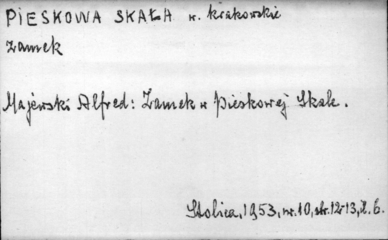 PIESKOWA SKAŁA w. krakowskie
zamek
Majewski Alfred: Zamek w Pieskowej Skale.
Stolica, 1953, nr. 10, str. 12-13, il. 6.